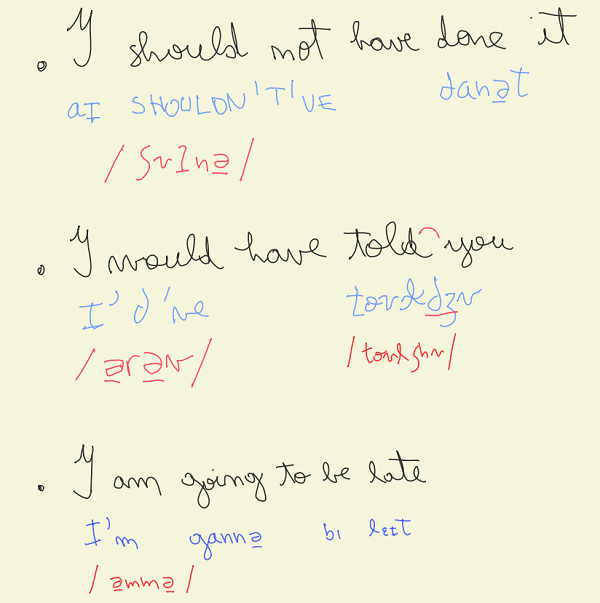 • I should not have done it
aɪ SHOULDN'T'VE danət
/ʃʊɾnə/
• I would have told you
I'd've toʊldʒʊ
/ərəv/ /toʊlʒhʊ/
• I am going to be late
I'm gannə bɪ leɪt
/əmmə/